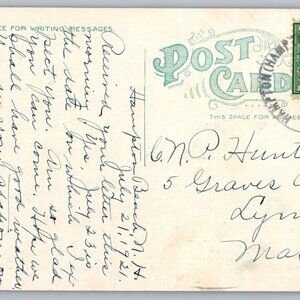 CE FOR WRITING MESSAGES
POST
CARD
THIS SPACE FOR
HAMPTON
Hampton Beach N.H.
July 21, 1921.
Received your letter this
morning. Yes July 23 is
the date on which I ex
pect you. Am so glad
you can come. Hope we
shall have good weather.
N. P. Hunt
5 Graves
Lyn
Mas